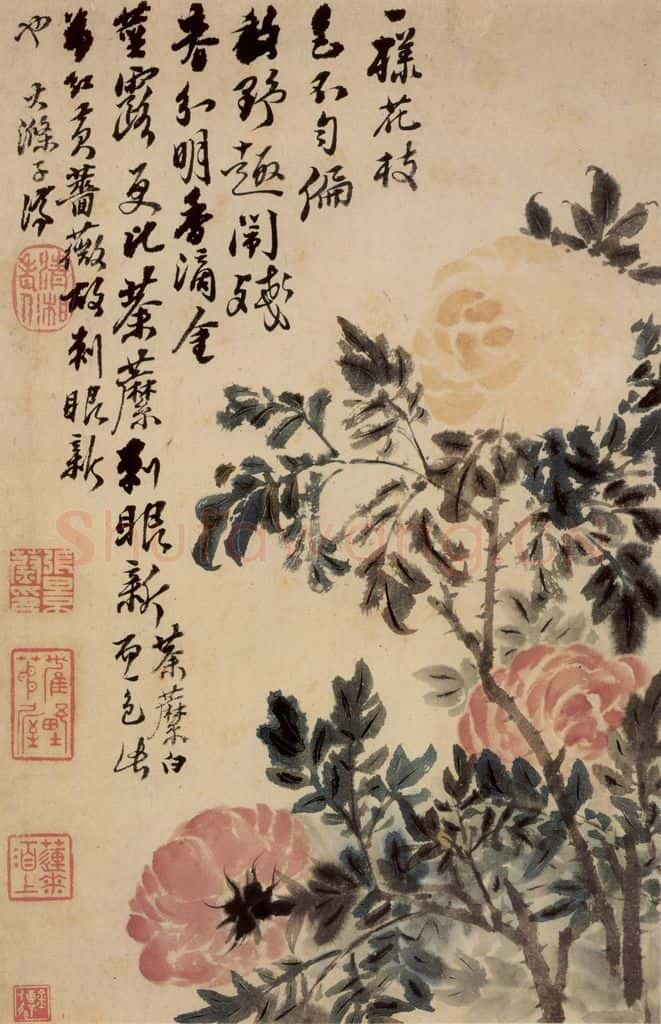 一樣花枝
色不勻偏
教野趣鬧殘
春分明香滴金
莖露更比荼蘼刺眼新
荼蘼白
而色
紅黃薔薇故刺眼新
也 大滌子濟
清湘老人
shufawang.cn